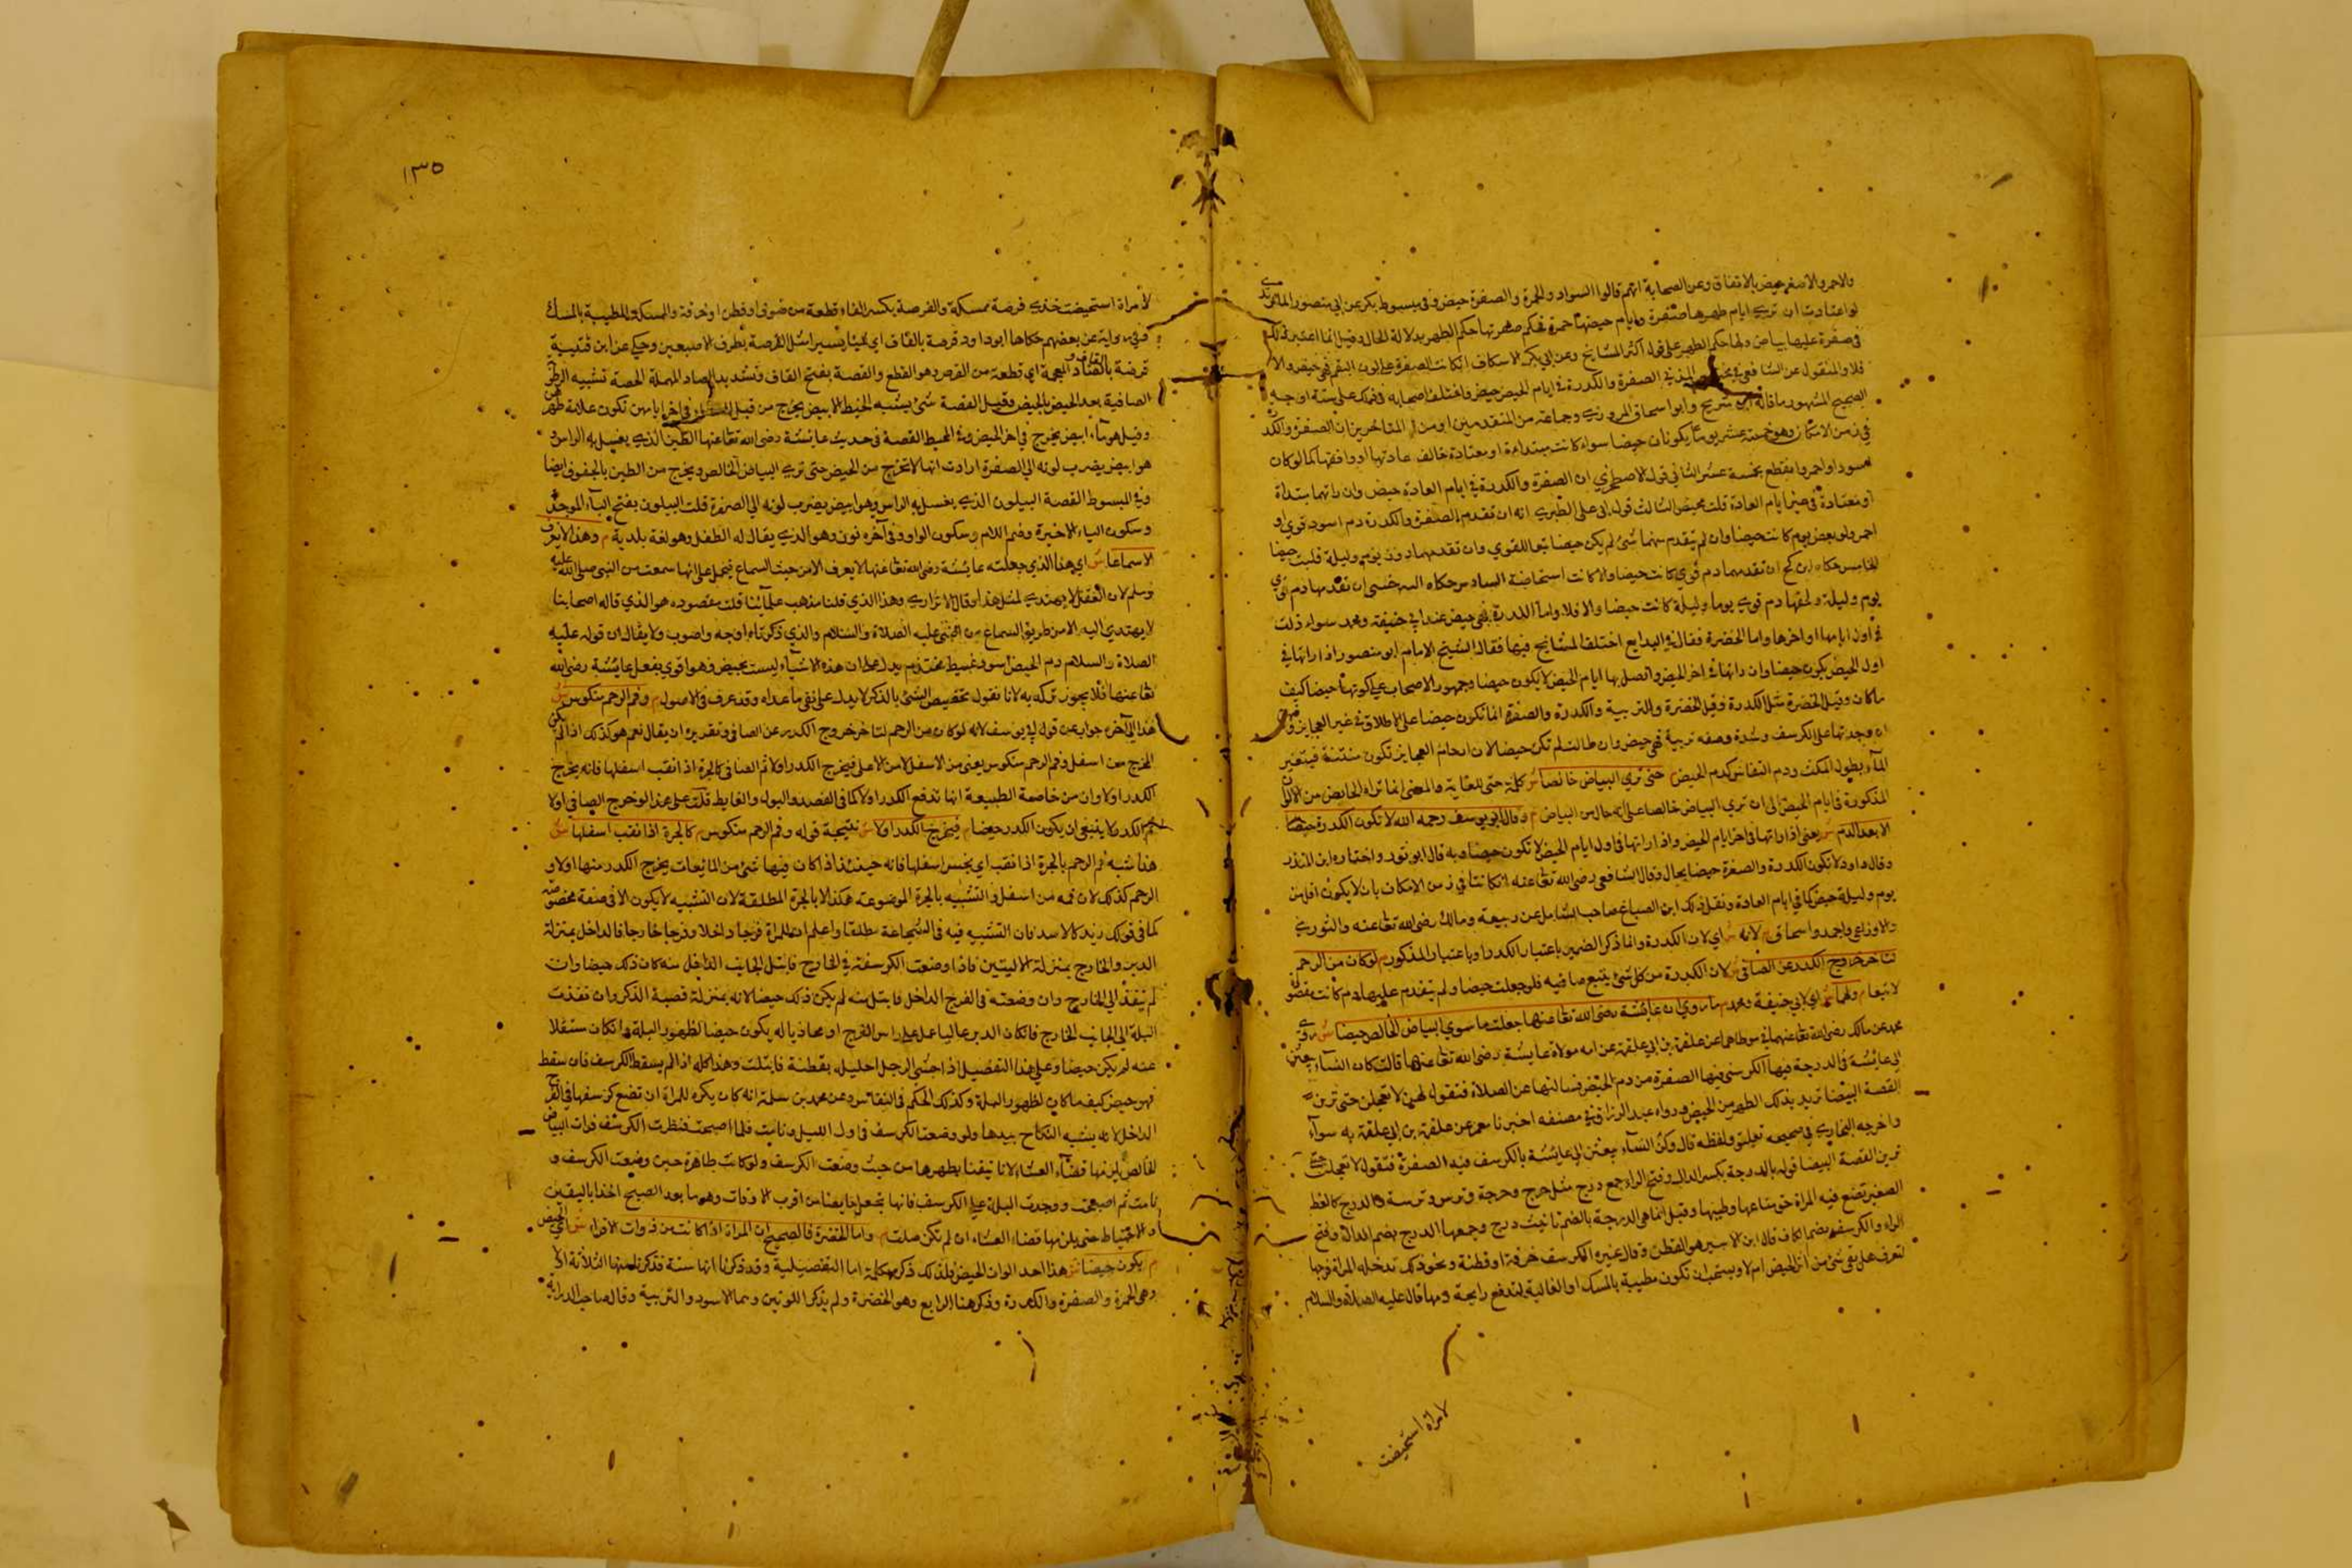 والاحمر والاصفر حيض بالاتفاق وعن الصحابة انهم قالوا السواد والحمرة والصفرة حيض وفي مبسوط بكر عن ابي منصور الماتريدي
لو اعتادت ان تري ايام طهرها صفرة وايام حيضها حمرة فحكم صفرتها حكم الطهر بدلالة الحال وقيل انما اعتبر ذلك
في صفرة عليها بياض ولها حكم الطهر علي قول اكثر المشايخ وعن ابي بكر الاسكاف ان كانت الصفرة علي لون البقم فهي حيض والا
فلا والمنقول عن الشافعي في الصفرة والكدرة في ايام الحيض حيض واختلف اصحابه في ذلك علي ستة اوجه
الصحيح المشهور ما قاله ابن سريج وابو اسحاق المروزي وجماعة من المتقدمين المتأخرين ان الصفرة والكدرة
في زمن الامكان وهو خمسة عشر يوما يكونان حيضا سواء كانت مبتداءة او معتادة خالف عادتها او وافقها كما لو كان
اسود او احمر وانقطع بخمسة عشر الثاني قول الاصطخري ان الصفرة والكدرة في ايام العادة حيض وان راتهما مبتداة
او معتادة في غير ايام العادة فليست بحيض الثالث قول ابي علي الطبري انه ان تقدم الصفرة والكدرة دم اسود قوي او
احمر ولو بعض يوم كانت حيضا وان لم يتقدم منهما شئ لم يكن حيضا تبعا للقوي وان تقدمهما دون يوم وليلة فليست حيضا
الخامس حكاه ابن كج ان تقدمهما دم قوي كانت حيضا والا كانت استحاضة السادس حكاه السرخسي ان تقدمها دم قوي
يوم وليلة ولحقهما دم قوي يوما وليلة كانت حيضا والا فلا واما الكدرة فهي حيض عند ابي حنيفة ومحمد سواء رات
في اول ايامها او اخرها واما الخضرة فقال في البدايع اختلف المشايخ فيها فقال الشيخ الامام ابو منصور اذا راتها في
اول الحيض يكون حيضا وان راتها في اخر الحيض واتصل بها ايام الحيض لا يكون حيضا وجمهور الاصحاب علي كونها حيضا كيف
ما كان وقيل الخضرة مثل الكدرة وقيل الخضرة والتربية والكدرة والصفرة انما تكون حيضا علي الاطلاق في غير العجايز وفي
ان وجدتها علي الكرسف ومدة وضعه قريبة فهي حيض وان طالت لم تكن حيضا لان ارحام العجايز تكون منتنة فيتغير
الماء بطول المكث ودم النفاس كدم الحيض حتي تري البياض خالصا ش كلمة حتي للغاية والمعني انما تراه الحايض من الالوان
المذكورة في ايام الحيض الي ان تري البياض خالصا علي انه حال من البياض م وقال ابو يوسف رحمه الله لا تكون الكدرة حيضا
الا بعد الدم ش يعني اذا راتها في اخر ايام الحيض واذا راتها في اول ايام الحيض لا تكون حيضا وبه قال ابو ثور واختاره ابن المنذر
وقال داود لا تكون الكدرة والصفرة حيضا بحال وقال الشافعي رضي الله تعا عنه ان كانتا في زمن الامكان بان لا يكون اقل من
يوم وليلة حيض كما في ايام العادة ونقل ذلك ابن الصباغ صاحب الشامل عن ربيعة ومالك رضي الله تعا عنه والثوري
والاوزاعي واحمد واسحاق م لانه ش اي لان الكدرة وانما ذكر الضمير باعتبار الكدر او باعتبار المذكور م لو كان من الرحم
لتاخر خروج الكدر عن الصافي ش لان الكدرة من كل شئ يتبع صافيه فلو جعلت حيضا ولم يتقدم عليها دم كانت مقصودة
لا تبعا م ولهما ش اي لابي حنيفة ومحمد م ما روي ان عايشة رضي الله تعا عنها جعلت ما سوي البياض الخالص حيضا ش روي
محمد عن مالك رضي الله تعا عنهما في موطاهما عن علقمة بن ابي علقمة عن امه مولاة عايشة رضي الله تعا عنها قالت كان النساء يبعثن
الي عايشة في الدرجة فيها الكرسف فيها الصفرة من دم الحيض فسالنها عن الصلاة فتقول لهن لا تعجلن حتي ترين
القصة البيضا تريد بذلك الطهر من الحيض ورواه عبد الرزاق في مصنفه اخبرنا معمر عن علقمة بن ابي علقمة به سواء
واخرجه البخاري في صحيحه تعليقا ولفظه قال وكن النساء يبعثن الي عايشة بالكرسف فيه الصفرة فتقول لا تعجلن حتي
ترين القصة البيضا قوله بالدرجة بكسر الدال وفتح الراء جمع درج مثل خرج وخرجة وترس وترسة والدرج كالسفط
الصغير تضع فيه المراة خف متاعها وطيبها وقيل انما هي الدرجة بالضم تانيث درج وجمعها الدرج بضم الدال وفتح
الراء والكرسف بضم الكاف قال ابن الاسير هو القطن وقال غيره الكرسف خرقة او قطنة ونحو ذلك تدخله المراة فرجها
لتعرف هل بقي شئ من اثر الحيض ام لا ويستحب ان تكون مطيبة بالمسك او الغالية لتدفع رايحة دمها قال عليه الصلاة والسلام
لامراة استحيضت
١٣٥
لامراة استحيضت خذي فرصة ممسكة والفرصة بكسر الفاء قطعة من صوف او قطن او خرقة والممسكة المطيبة بالمسك
وفي رواية عن بعضهم حكاها ابو داود قرصة بالقاف اي شيئا يسيرا مثل القرصة بطرف الاصبعين وحكي عن ابن قتيبة
قرضة بالقاف والضاد المعجمة اي قطعة من القرض وهو القطع والقصة بفتح القاف وتشديد الصاد المهملة الجصة تشبيه الرطوبة
الصافية بعد الحيض بالجص وقيل القصة شئ يشبه الخيط الابيض يخرج من قبل النساء في اخر ايامهن تكون علامة طهرهن
وقيل هو ماء ابيض يخرج في اخر الحيض وفي المحيط القصة في حديث عائشة رضي الله تعا عنها الطين الذي يغسل به الراس و
هو ابيض يضرب لونه الي الصفرة ارادت انها لا تخرج من الحيض حتي تري البياض الخالص ويخرج من الطين بالجفوف ايضا
وفي المبسوط القصة البيلون الذي يغسل به الراس وهو ابيض يضرب لونه الي الصفرة قلت البيلون بفتح الباء الموحدة
وسكون الياء الاخيرة وضم اللام وسكون الواو وفي آخره نون وهو الذي يقال له الطفل وهو لغة بلدية م وهذا لا يعرف
الا سماعا ش اي هذا الذي جعلته عايشة رضي الله تعا عنها لا يعرف الا من حيث السماع فيحمل علي انها سمعت من النبي صلي الله عليه
وسلم لان العقل لا يهتدي لمثل هذا وقال الاترازي وهذا الذي قلنا مذهب علمائنا قلت مقصوده هو الذي قاله اصحابنا
لا يهتدي اليه الا من طريق السماع من النبي عليه الصلاة والسلام والذي ذكرناه اوجه واصوب ولا يقال ان قوله عليه
الصلاة والسلام دم الحيض اسود عبيط محتدم يدل علي ان هذه الاشياء ليست بحيض وهو اقوي بفعل عايشة رضي الله
تعا عنها فلا يجوز تركه به لانا نقول تخصيص الشئ بالذكر لا يدل علي نفي ما عداه وقد عرف في الاصول م وفم الرحم منكوس ش
هذا الي آخره جواب عن قول ابي يوسف لانه لو كان من الرحم لتاخر خروج الكدر عن الصافي وتقديره ان يقال نعم هو كذلك اذا لم يكن
المخرج من اسفل وفم الرحم منكوس يعني من الاسفل لا من الاعلي فيخرج الكدر اولا ثم الصافي كالجرة اذا نقب اسفلها فانه يخرج
الكدر اولا وان من خاصة الطبيعة انها تدفع الكدر اولا كما في الفصد والبول والغايط قلت علي هذا لو خرج الصافي اولا
ثم الكدر لا ينبغي ان يكون الكدر حيضا م فيخرج الكدر اولا ش نتيجة قوله وفم الرحم منكوس م كالجرة اذا نقب اسفلها ش
هذا شبه فم الرحم بالجرة اذا نقب اي بخس اسفلها فانه حينئذ اذا كان فيها شئ من المائعات يخرج الكدر منها اولا و
الرحم كذلك لان فمه من اسفل والتشبيه بالجرة الموضوعة هكذا لا بالجرة المطلقة لان التشبيه لا يكون الا في صفة مخصوصة
كما في قولك زيد كالاسد فان التشبيه فيه في الشجاعة مطلقا واعلم ان للمراة فرجا داخلا وفرجا خارجا فالداخل بمنزلة
الدبر والخارج بمنزلة الاليتين فاذا وضعت الكرسفة في الخارج فابتل الجانب الداخل منه كان ذلك حيضا وان
لم ينفذ الي الخارج وان وضعته في الفرج الداخل فابتل منه لم يكن ذلك حيضا لانه بمنزلة قصبة الذكر وان نفذت
البلة الي الجانب الخارج فان كان الدبر عاليا عمل علي راس الفرج او محاذيا له يكون حيضا لظهور البلة وان كان مستفلا
عنه لم يكن حيضا وعلي هذا التفصيل اذا حشي الرجل احليله بقطنة فابتلت وهذا كله اذا لم يسقط الكرسف فان سقط
فهو حيض كيف ما كان لظهور البلة وكذلك الحكم في النفاس وعن محمد بن سلمة انه كان يكره للمراة ان تضع كرسفها في الفرج
الداخل لانه يشبه النكاح بيدها ولو وضعت الكرسف في اول الليل ونامت فلما اصبحت فنظرت الكرسف فرات البياض
الخالص يلزمها قضاء العشاء لانا تيقنا بطهرها من حيث وضعت الكرسف ولو كانت طاهرة حين وضعت الكرسف و
نامت ثم اصبحت ووجدت البلة علي الكرسف فانها تجعل حايضا من اقرب الاوقات وهو ما بعد الصبح اخذا باليقين
والاحتياط حتي يلزمها قضاء العشاء ان لم تكن صلت م واما الخضرة فالصحيح ان المراة اذا كانت من ذوات الاقراء ش اي الحيض
م يكون حيضا ش هذا احد الوان الحيض فلذلك ذكره بكلمة اما التفصيلية وقد ذكرنا انها ستة فذكر منها الثلاثة الا
وهي الحمرة والصفرة والكدرة وذكر هنا الرابع وهو الخضرة ولم يذكر اللونين وهما الاسود والتربية وقال صاحب الدراية